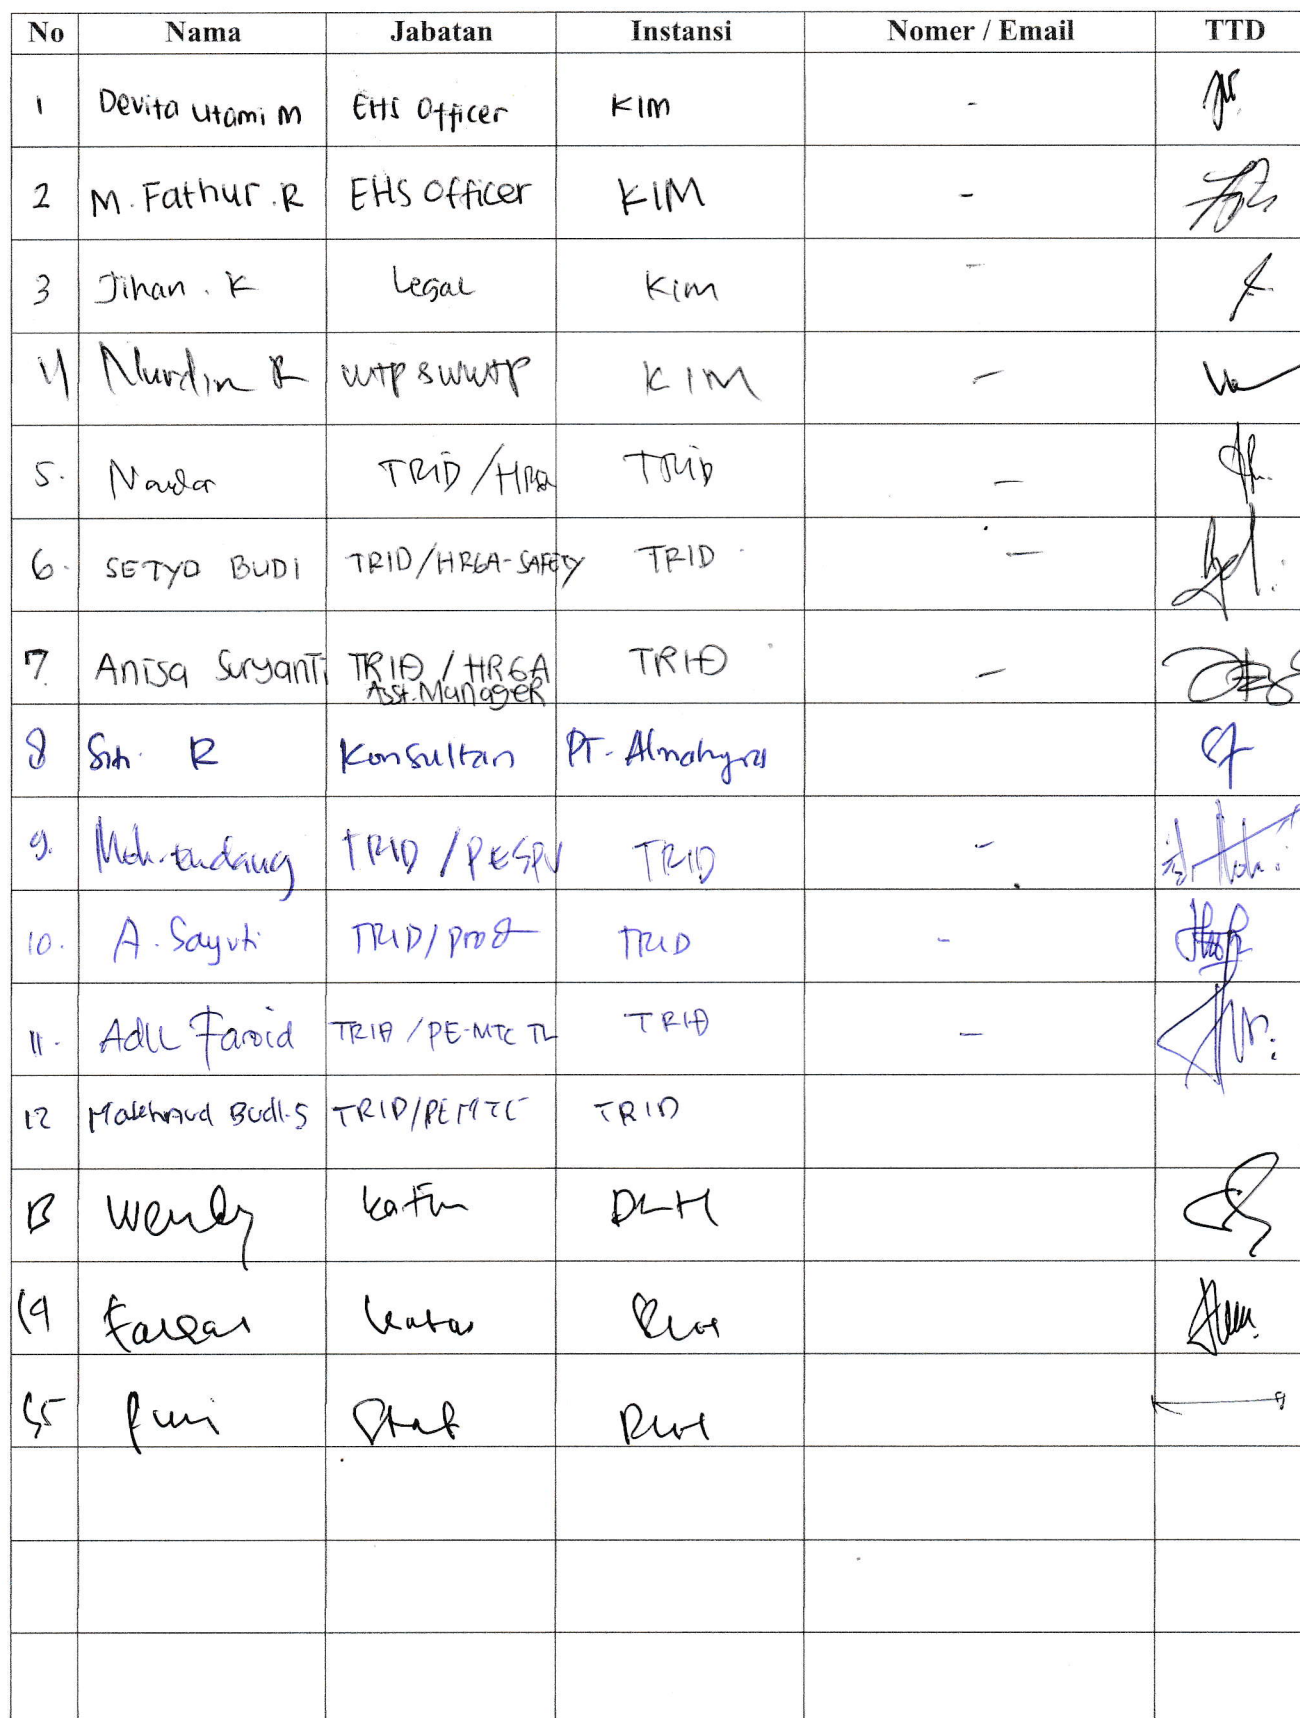 No Nama Jabatan Instansi Nomer / Email TTD
1 Devita Utami M EHS Officer KIM -
2 M. Fathur. R EHS Officer KIM -
3 Jihan. K Legal KIM -
4 Nurdin R WTP & WWTP KIM -
5. TRID / HRGA TRID -
6. SETYO BUDI TRID/HRGA-SAFETY TRID -
7. Anisa Suryanti TRID / HRGA TRID -
Asst. Manager
8 Siti. R Konsultan PT. -
9. Moh. Endang TRID / PE SPV TRID -
10. A. Sayuti TRID/Prod TRID -
11. Adil Faroid TRID / PE-MTC TL TRID -
12 Makhmud Budi.S TRID/PE MTC TRID
13 Wendy Katim DLH
14 DLH
15 Staf DLH